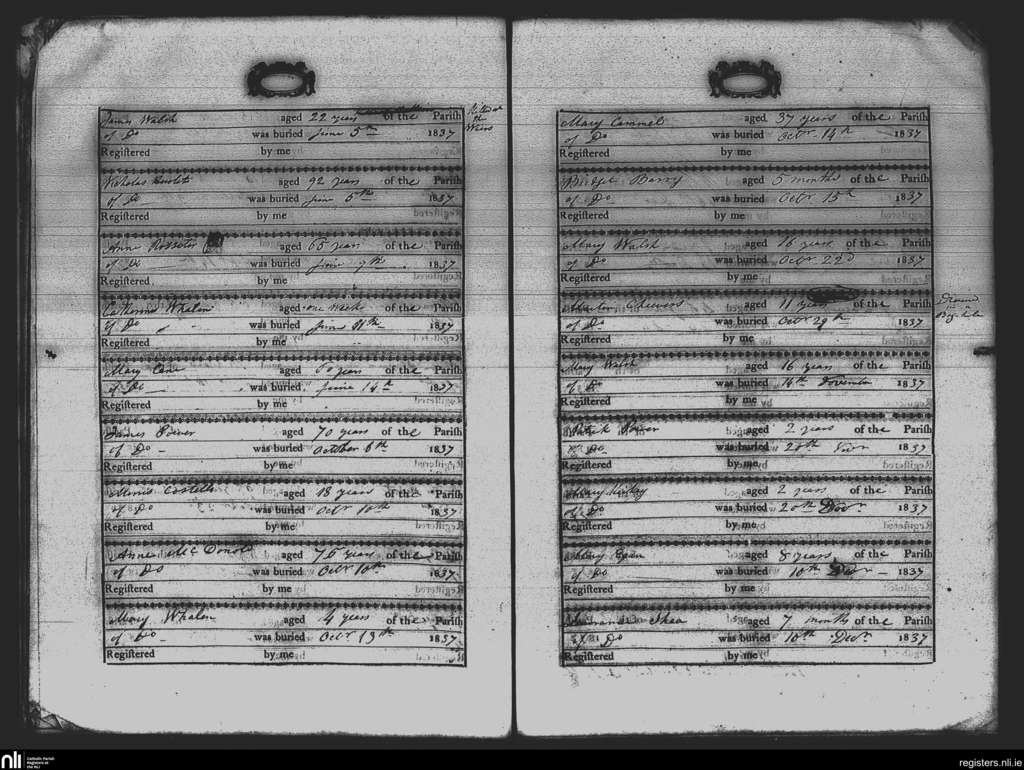 James Walsh aged 22 years of the Parish
Killed at
the
of Do was buried June 5th 1837
Registered by me
Nicholas aged 92 years of the Parish
of Do was buried June 6th 1837
Registered by me
Anne Rossiter aged 65 years of the Parish
of Do was buried June 9th 1837
Registered by me
Catherine Whalen aged one week of the Parish
of Do was buried June 11th 1837
Registered by me
Mary aged years of the Parish
of Do was buried June 14th 1837
Registered by me
James Power aged 70 years of the Parish
of Do was buried October 6th 1837
Registered by me
Costello aged 18 years of the Parish
of Do was buried Octr 10th 1837
Registered by me
Anne McDonold aged years of the Parish
of Do was buried Octr 10th 1837
Registered by me
Mary Whalen aged 4 years of the Parish
of Do was buried Octr 13th 1837
Registered by me
Mary aged 37 years of the Parish
of Do was buried Octr 14th 1837
Registered by me
Bridget Barry aged 5 months of the Parish
of Do was buried Octr 15th 1837
Registered by me
Mary Walsh aged 16 years of the Parish
of Do was buried Octr 22d 1837
Registered by me
Cheevers aged 11 years of the Parish
of Do was buried Octr 29th 1837
Registered by me
Mary Walsh aged 16 years of the Parish
of Do was buried 14th 1837
Registered by me
Patrick Power aged 2 years of the Parish
of Do was buried 1837
Registered by me
Mary aged 2 years of the Parish
of Do was buried 20th 1837
Registered by me
Mary Ryan aged 8 years of the Parish
of Do was buried 10th 1837
Registered by me
Shea aged 7 months of the Parish
of Do was buried 10th Decr 1837
Registered by me
nli
Catholic Parish
Registers at
the NLI
registers.nli.ie